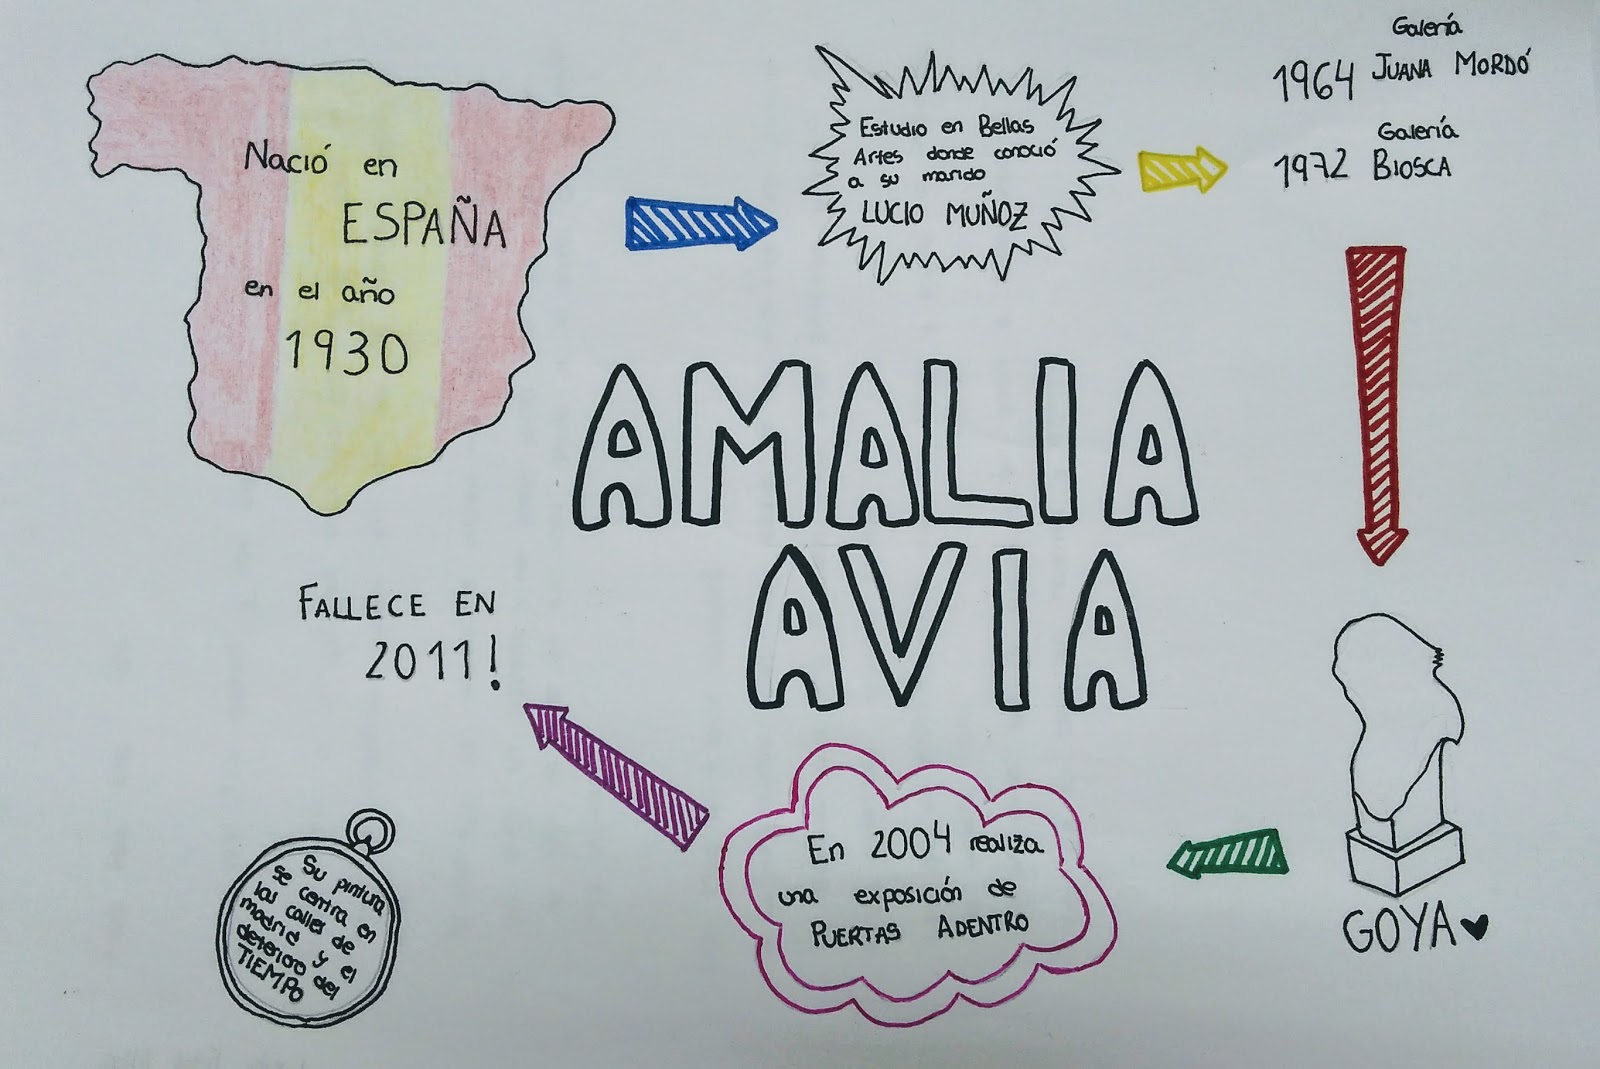 Nació en
ESPAÑA
en el año
1930
Estudio en Bellas
Artes donde conoció
a su marido
LUCIO MUÑOZ
Galería
1964 JUANA MORDÓ
Galería
1972 BIOSCA
AMALIA
AVIA
GOYA
En 2004 realiza
una exposición de
PUERTAS ADENTRO
FALLECE EN
2011!
Su pintura
se centra en
las calles de
madrid y el
deterioro del
TIEMPO